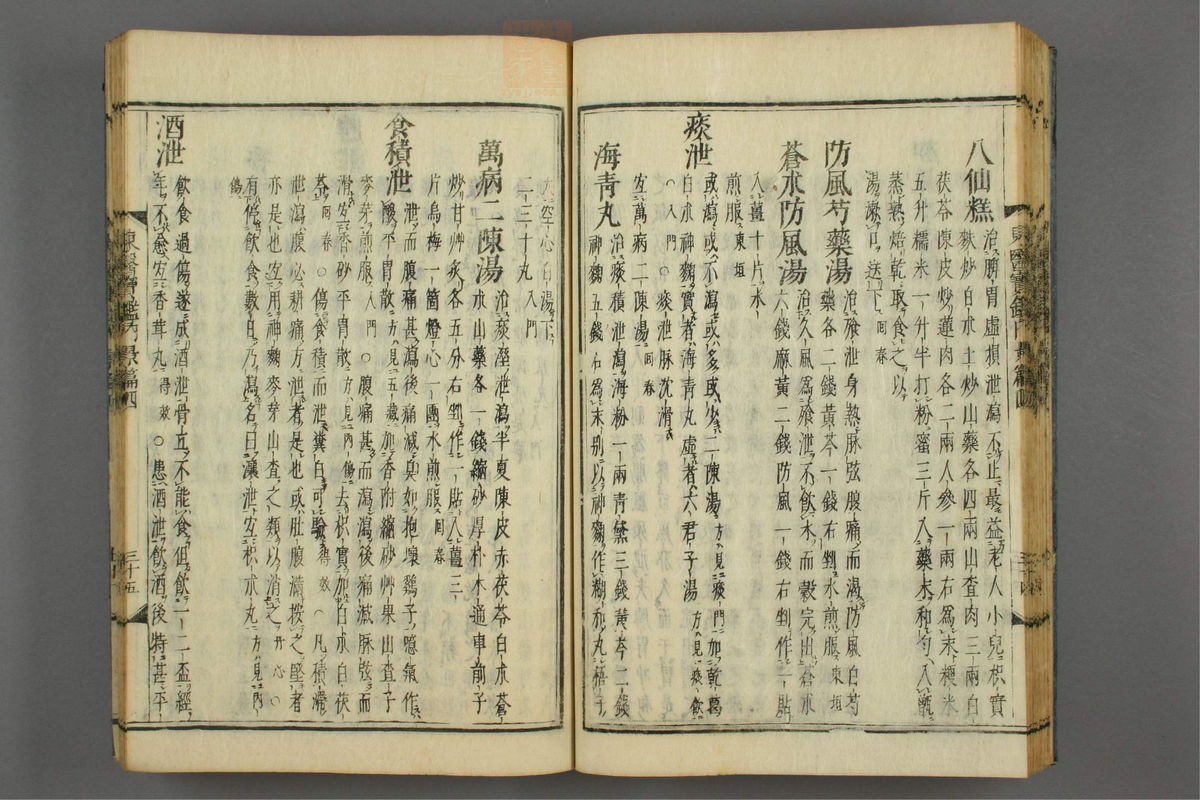 八仙糕 治脾胃虛損泄瀉不止最益老人小兒枳實
麩炒白朮土炒山藥各四兩山査肉三兩白
茯苓陳皮炒蓮肉各二兩人參一兩右爲末粳米
五升糯米一升半打粉蜜三斤入藥末和勻入甑
蒸熟焙乾取食之以
湯漱口送下 回春
防風芍藥湯 治飱泄身熱脉弦腹痛而渴防風白芍
藥各二錢黃芩一錢右剉水煎服 東垣
蒼朮防風湯 治久風爲飱泄不飮水而穀完出蒼朮
六錢麻黃二錢防風一錢右剉作一貼
入薑十片水
煎服 東垣
痰泄 或瀉或不瀉或多或少二陳湯 方見痰門 加乾葛
白朮神麴實者海靑丸虛者六君子湯 方見痰飮
宜萬病二陳湯 回春
之 入門 ○痰泄脉沈滑
海靑丸 治痰積泄瀉海粉一兩靑黛三錢黃芩二錢
神麴五錢右爲末別以神麴作糊和丸梧子
大空心白湯下
二三十丸 入門
萬病二陳湯 治痰溼泄瀉半夏陳皮赤茯苓白朮蒼
朮山藥各一錢縮砂厚朴木通車前子
炒甘艸灸各五分右剉作一貼入薑三
片烏梅一箇燈心一團水煎服 回春
食積泄 泄而腹痛甚瀉後痛減臭如抱壞鷄子噫氣作
酸平胃散 方見五藏 加香附縮砂艸果山査子
麥芽煎服 入門 ○腹痛甚而瀉瀉後痛減脉弦而
滑宜香砂平胃散 方見內傷 去枳實加白朮白茯
苓 回春 ○傷食積而泄糞白可驗 得效 ○凡積滯
泄瀉腹必耕痛方泄者是也或肚腹滿按之堅者
亦是也宜用神麴麥芽山査之類以消之 丹心 ○
有停飮食數日乃瀉名曰瀼泄宜枳朮丸 方見內
傷
酒泄 飮食過傷遂成酒泄骨立不能食但飮一二盃經
年不愈宜香茸丸 得效 ○患酒泄飮酒後特甚平
東醫寶鑑內景篇四 三十五